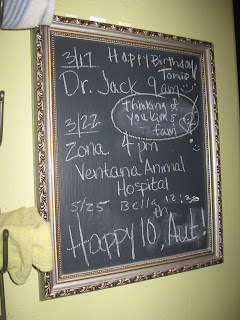 3/17 Happy Birthday
Tomio
Dr. Jack 9am
Thinking of
you Kim &
fam
3/22
Zona 4 pm
Ventana Animal
Hospital
5/25 Bella 12:30
Happy 10, Aut!